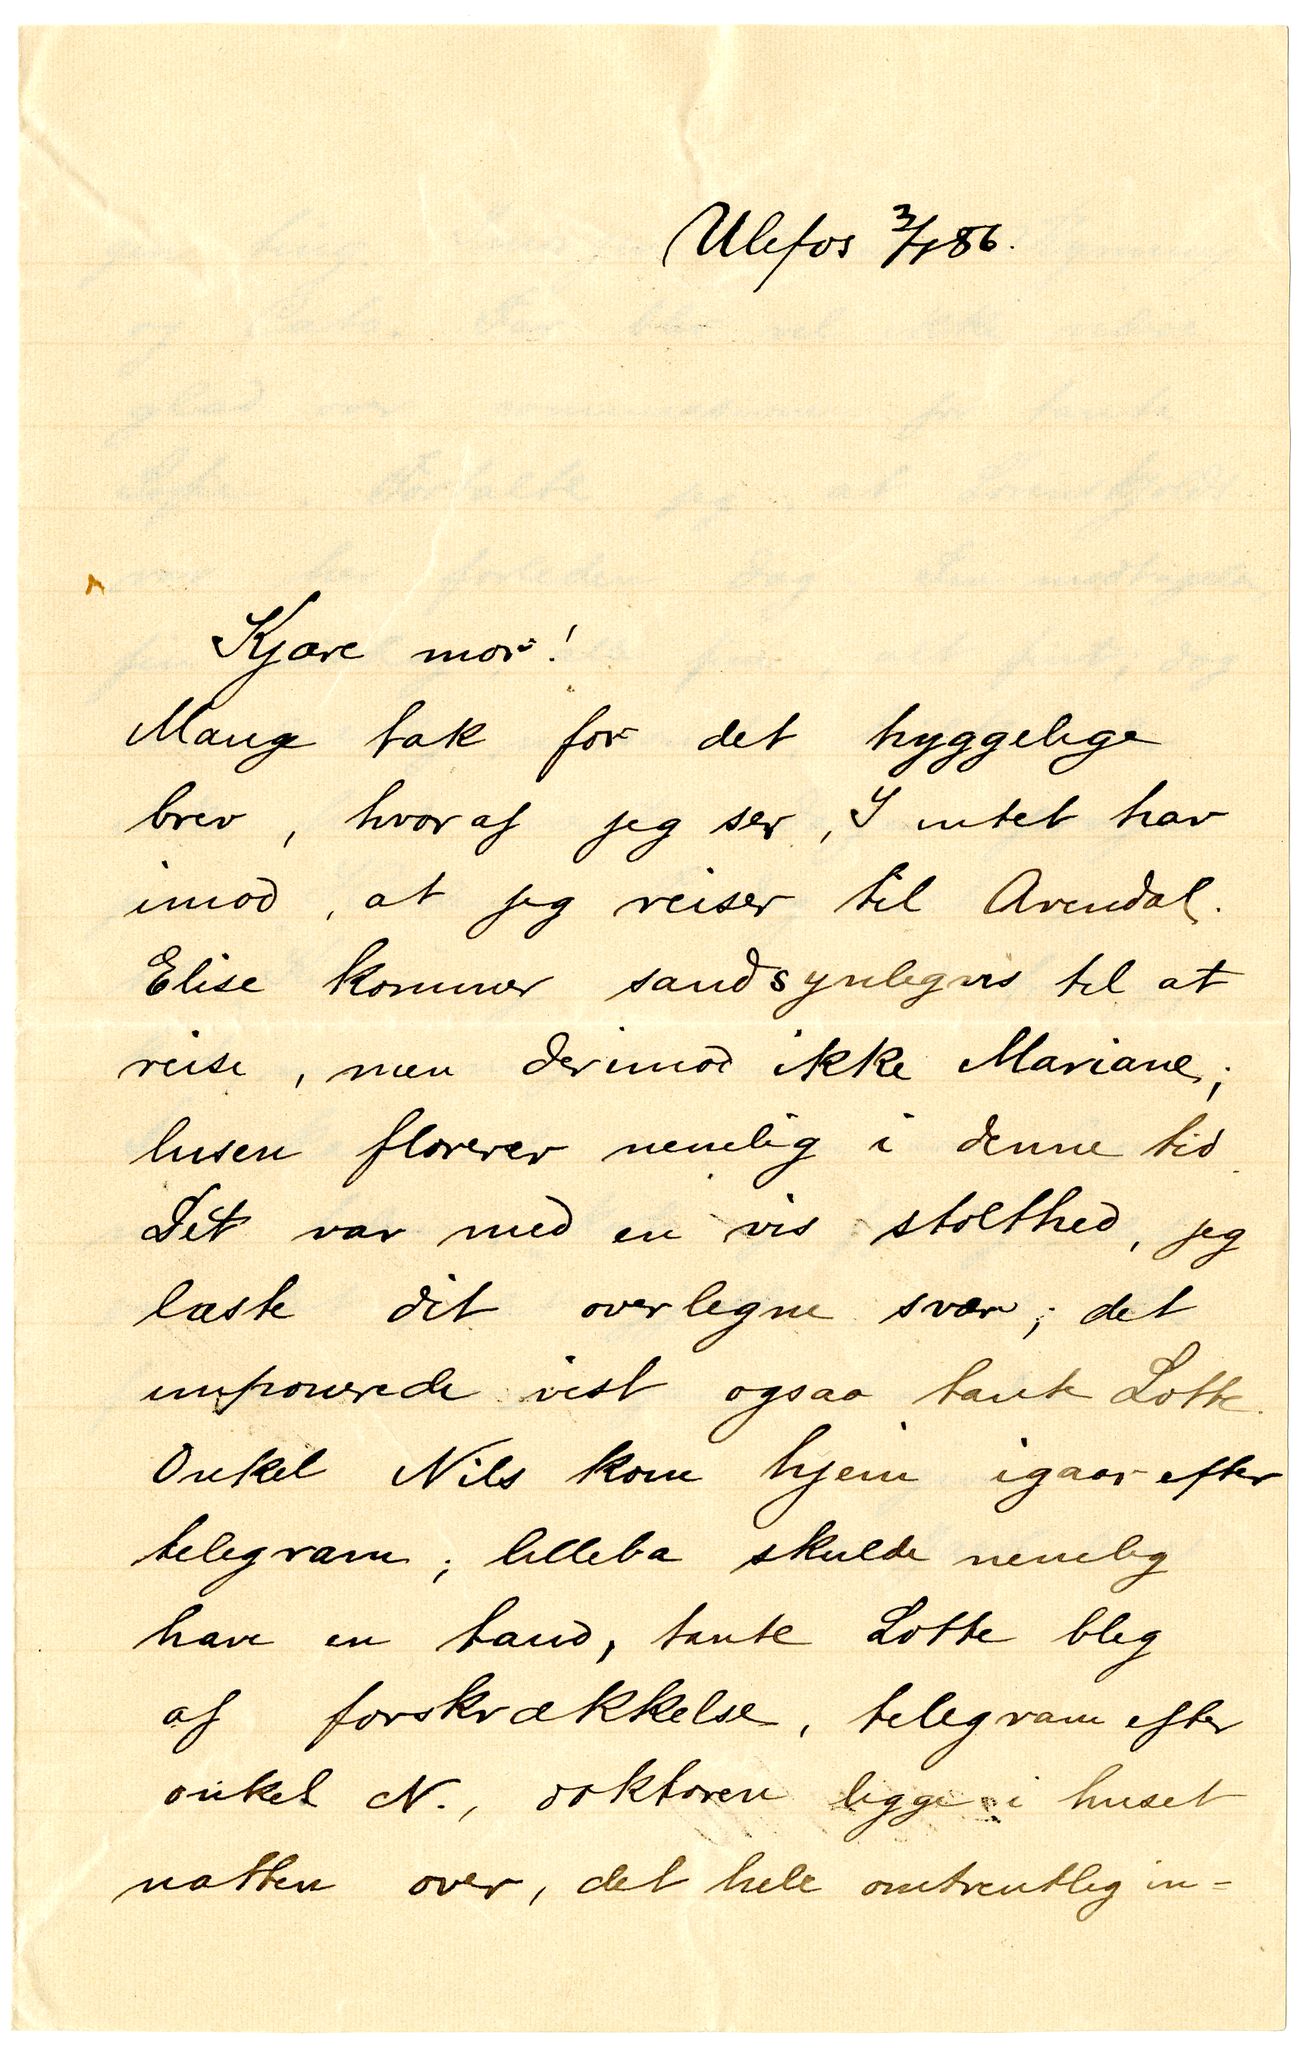 Ulefos 3/1 86.
Kjære mor!
Mange tak for det hyggelige
brev, hvoraf jeg ser, I intet har
imod, at jeg reiser til Arendal.
Elise kommer sandsynligvis til at
reise, men derimod ikke Mariane;
lusen florerer nemlig i denne tid.
Det var med en vis stolthed, jeg
læste dit overlegne svar; det
imponerede vist ogsaa tante Lotte.
Onkel Nils kom hjem igaar efter
telegram; lilleba skulde nemlig
have en tand, tante Lotte bleg
af forskrækkelse, telegram efter
onkel N., doktoren ligge i huset
natten over, det hele omtrentlig in-